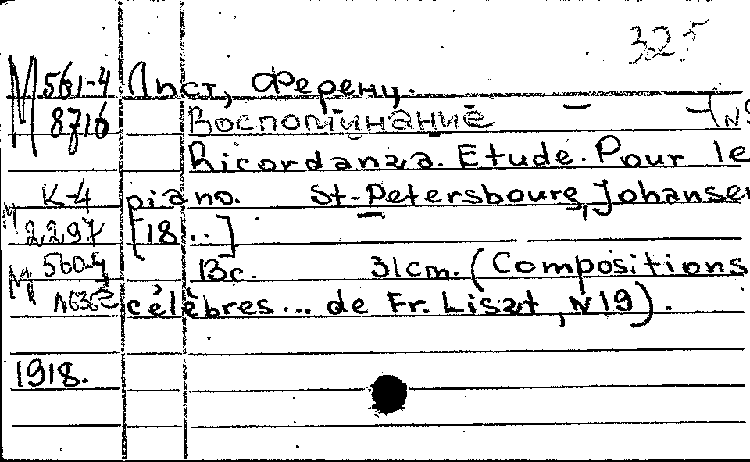 325
М 561-4 Лист, Ференц.
М 8716 Воспоминание - (N9
Ricordanza. Etude. Pour le
К-4 piano. St-Petersbourg, Johansen
М 2297 [18..]
М 560-4 13c. 31cm. (Compositions
célèbres... de Fr. Liszt, N19).
1918.